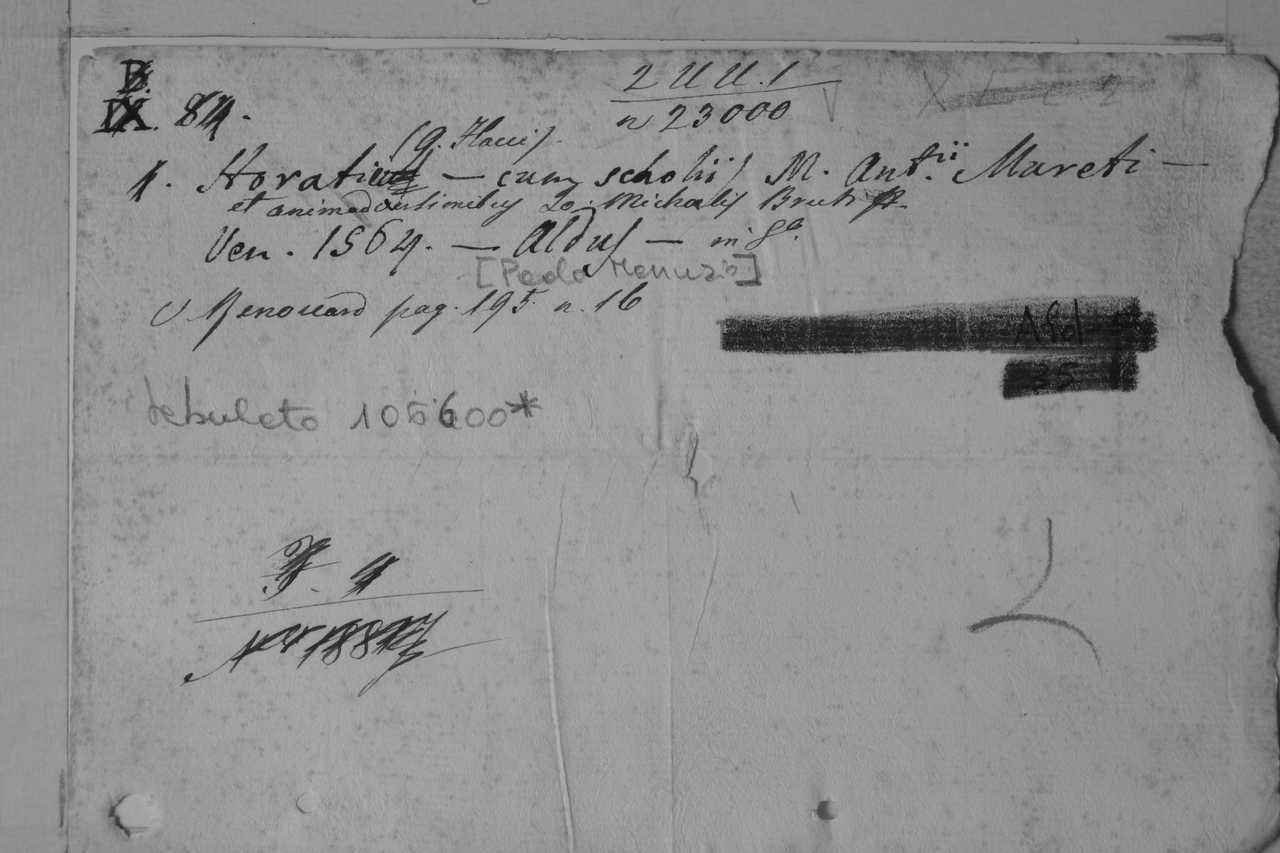 B.
IX. 84.
2 U U. 1
n 23000
(Q. Flacci)
1. Horatius — cum scholiis M. Ant.ii Mureti —
et animadversionibus Io. Michaelis Bruti
Ven. 1564. — Aldus — in 8°.
[Paolo Manuzio]
V Renouard pag. 195 n. 16
Ald
35
tebuleto 105600*